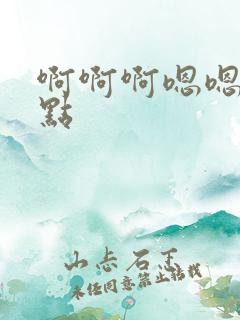 啊啊啊嗯嗯
點
山志石王
未经同意禁止转载